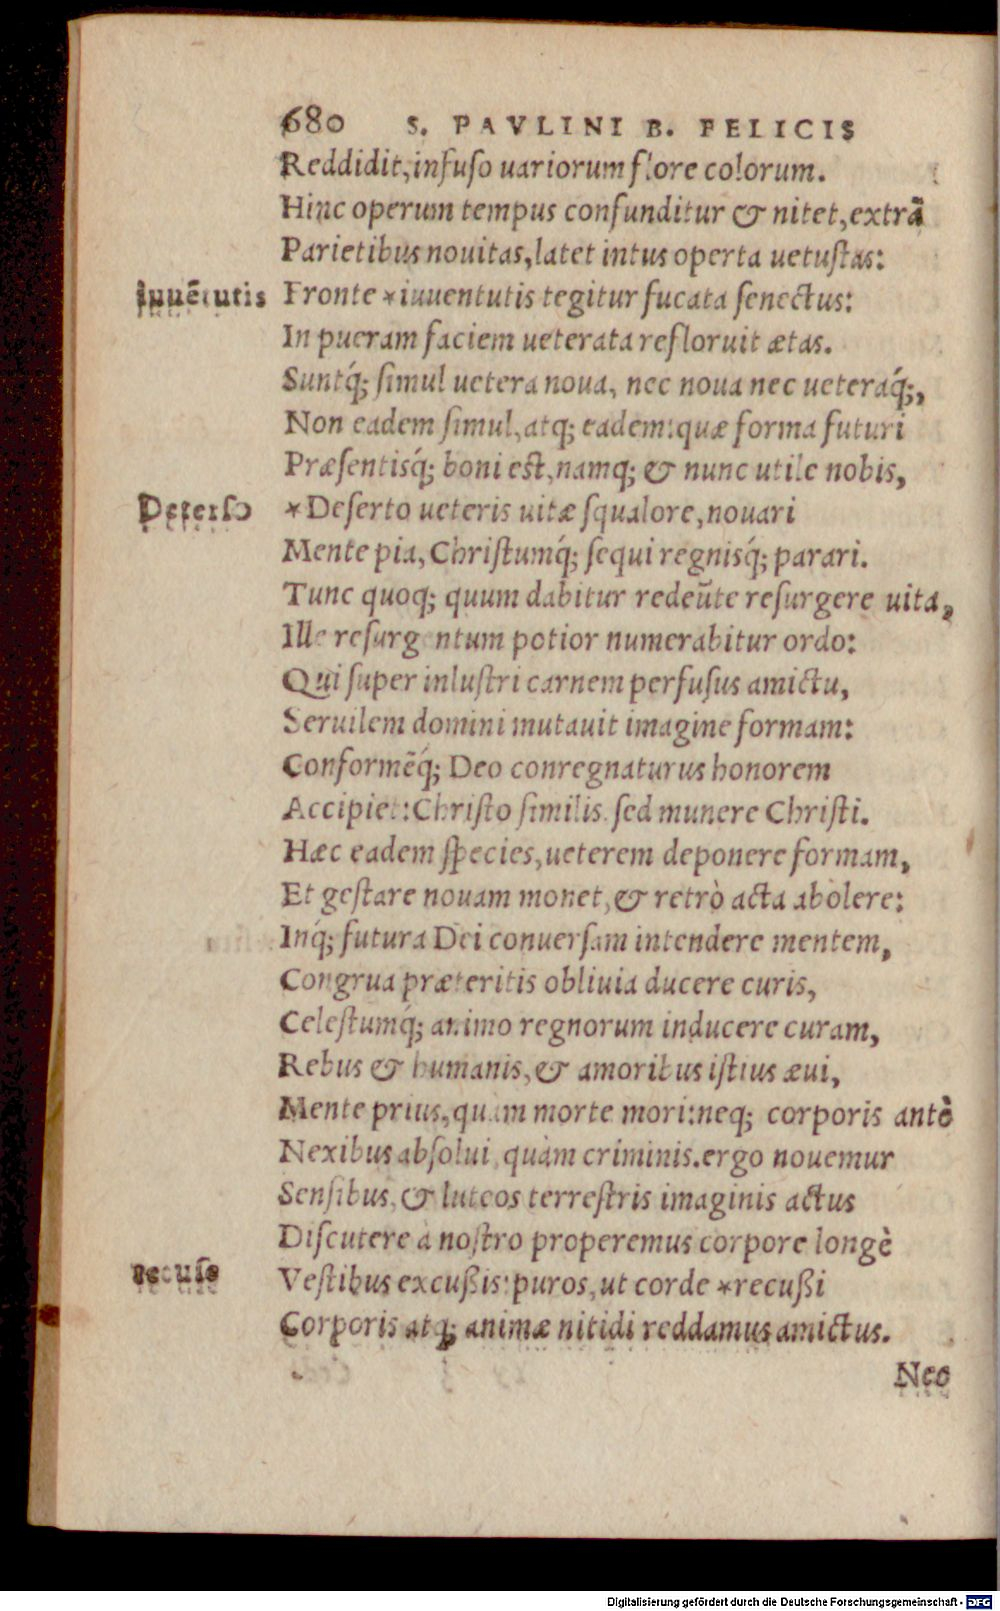 680 S. PAVLINI B. FELICIS
Reddidit, infuſo uariorum flore colorum.
Hinc operum tempus confunditur & nitet, extrã
Parietibus nouitas, latet intus operta uetuſtas:
iuuẽtutis Fronte *iuuentutis tegitur fucata ſenectus:
In pueram faciem ueterata refloruit ætas.
Suntq́; ſimul uetera noua, nec noua nec ueteraq́;,
Non eadem ſimul, atq; eadem: quæ forma futuri
Præſentisq́; boni est, namq; & nunc utile nobis,
Deterſo *Deſerto ueteris uitæ ſqualore, nouari
Mente pia, Chriſtumq́; ſequi regnisq́; parari.
Tunc quoq; quum dabitur redeũte reſurgere uita,
Ille reſurgentum potior numerabitur ordo:
Qui ſuper inluſtri carnem perfuſus amictu,
Seruilem domini mutauit imagine formam:
Conformẽq́; Deo conregnaturus honorem
Accipiet: Chriſto ſimilis. ſed munere Chriſti.
Hæc eadem ſpecies, ueterem deponere formam,
Et geſtare nouam monet, & retrò acta abolere:
Inq́; futura Dei conuerſam intendere mentem,
Congrua præteritis obliuia ducere curis,
Celeſtumq́; animo regnorum inducere curam,
Rebus & humanis, & amoribus iſtius æui,
Mente prius, quam morte mori: neq; corporis antè
Nexibus abſolui, quàm criminis. ergo nouemur
Senſibus, & luteos terreſtris imaginis actus
Diſcutere à noſtro properemus corpore longè
recuſe Veſtibus excußis: puros, ut corde *recußi
Corporis atq; animæ nitidi reddamus amictus.
Neo
Digitalisierung gefördert durch die Deutsche Forschungsgemeinschaft - DFG